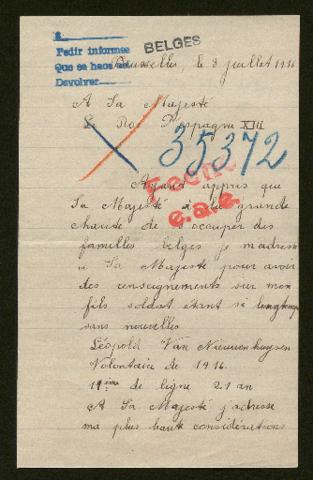 S.
Pedir informes
Que se haga
Devolver
BELGES
Bruxelles, le 3 juillet 1916
A Sa Majesté
Le Roi d'Espagne XIII
35372
Ayant appris que
Sa Majesté à la grande
charité de s'occuper des
familles belges je m'adresse
à Sa Majesté pour avoir
des renseignements sur mon
fils soldat étant si longtemps
sans nouvelles
Léopold Van Nieuwenhuysen
Volontaire de 1916
19ième de ligne 21 an
A Sa Majesté j'adresse
ma plus haute considérations